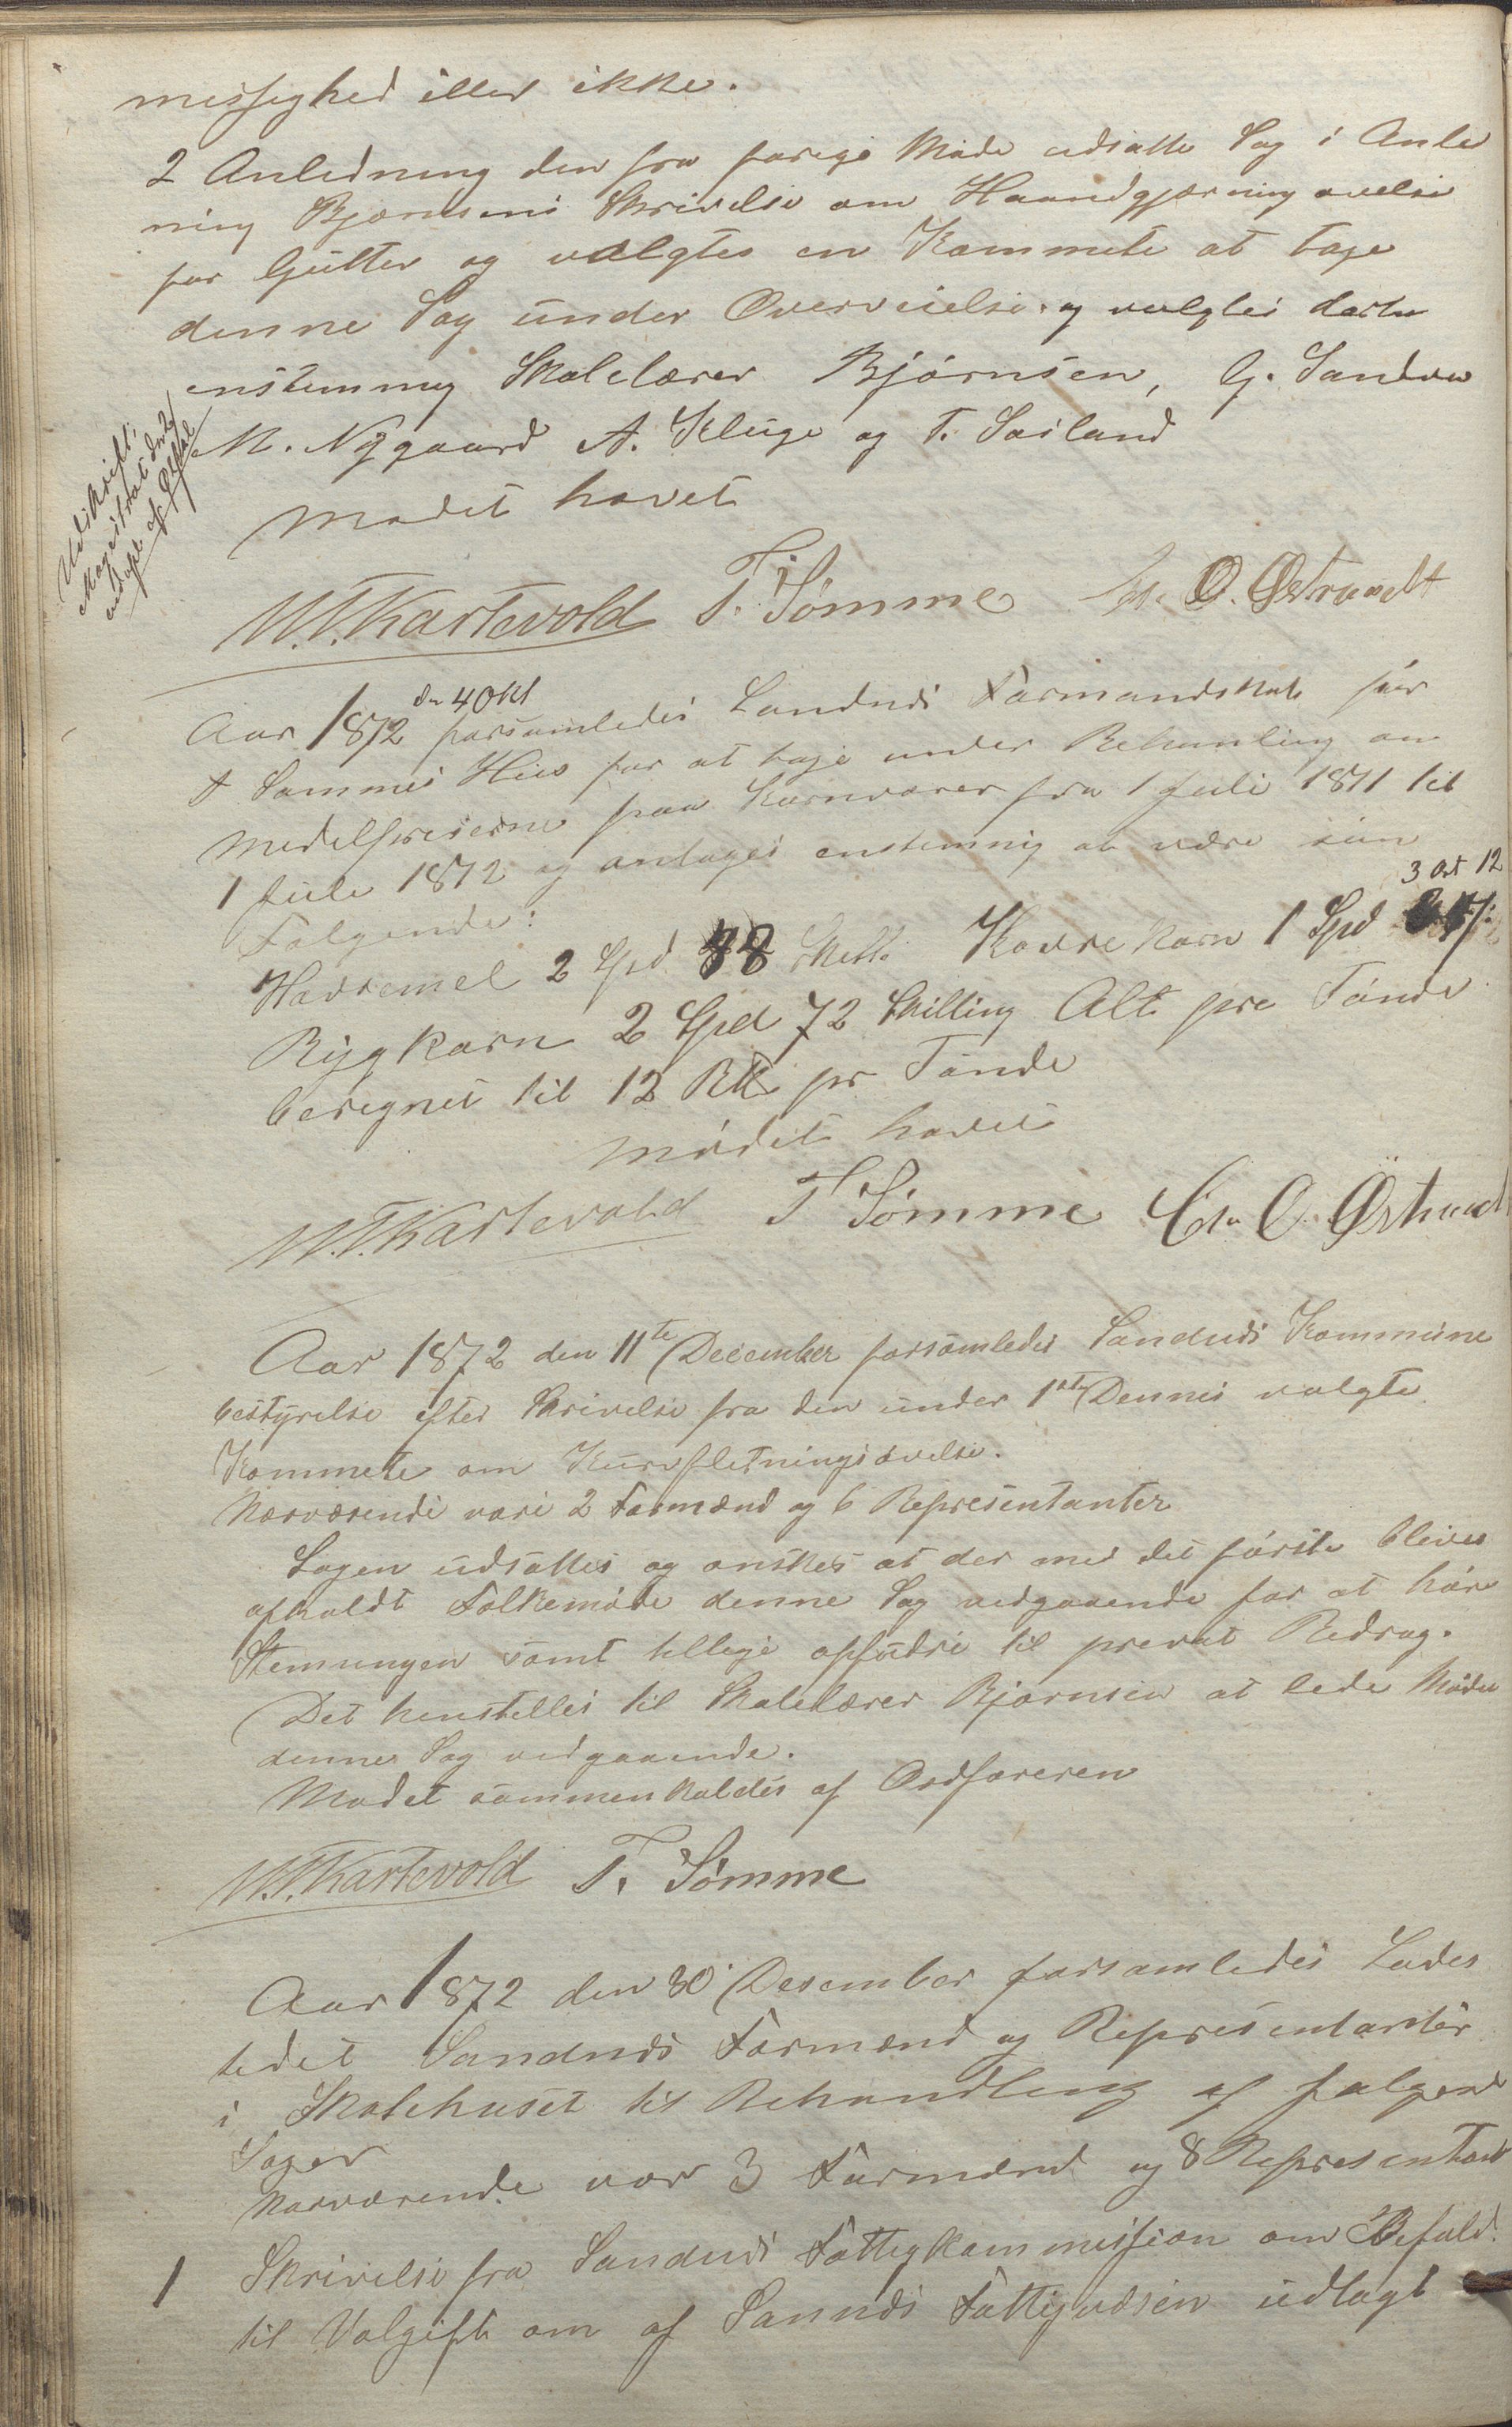 messighed eller ikke.
2 Anledning den fra forrige Møde udsatte Sag i Anled
ning Bjørnsens Skrivelse om Haandgjærning øvelse
for Gutter og valgtes en Kommete at tage
denne Sag under Overveielse og valgtes dertil
enstemmig Skolelærer Bjørnsen, G.
M. Nygaard A. Kluge og T. Sæiland
Mødet hævet
Udskrift
Magistrat
W.T.Kartevold T. Sømme O. Østraadt
Aar 1872 dn 4 Okt forsamledes Sandnes Formandskab
T Sømmes Hus for at tage under Behanling om
Medelpriserne paa Kornvarer fra 1 Juli 1871 til
1 Juli 1872 og antages enstemmig at være som
Følgende:
3 Ort 12
Havremel 2 Spd Skill. Havre korn 1 Spd
Bygkorn 2 Spd 72 Skilling Alt pre Tønde
beregnet til 12 pr Tønde
Mødet hævet
W.T.Kartevold T Sømme O. Østraadt
Aar 1872 den 11te December forsamledes Sandnes Kommune
bestyrelse efter Skrivelse fra den under 1ste Dennes valgte
Kommete om Kurvfletningsøvelse.
Nærværende vare 2 Formænd og 6 Representanter
Sagen udsattes og ønskes at der med det første bliver
afholdt Folkemøde denne Sag vedgaaende for at høre
Stemningen samt tillige opfodre til prevat Bedrag.
Det henstilles til Skolelærer Bjørnsen at lede Mødet
denne Sag vedgaaende.
Mødet sammenkaldes af Ordføreren
W.T.Kartevold T. Sømme
Aar 1872 den 30 Desember forsamledes Lades
tedet Sandnes Formænd og Representanter
i Skolehuset til Behandling af følgend
Sager
Nærværende var 3 Formænd og 8 Representant
1 Skrivelse fra Sandnes Fattigkommission om Befald.
til Valgift om af Sannes Fattigvæsen udlagt